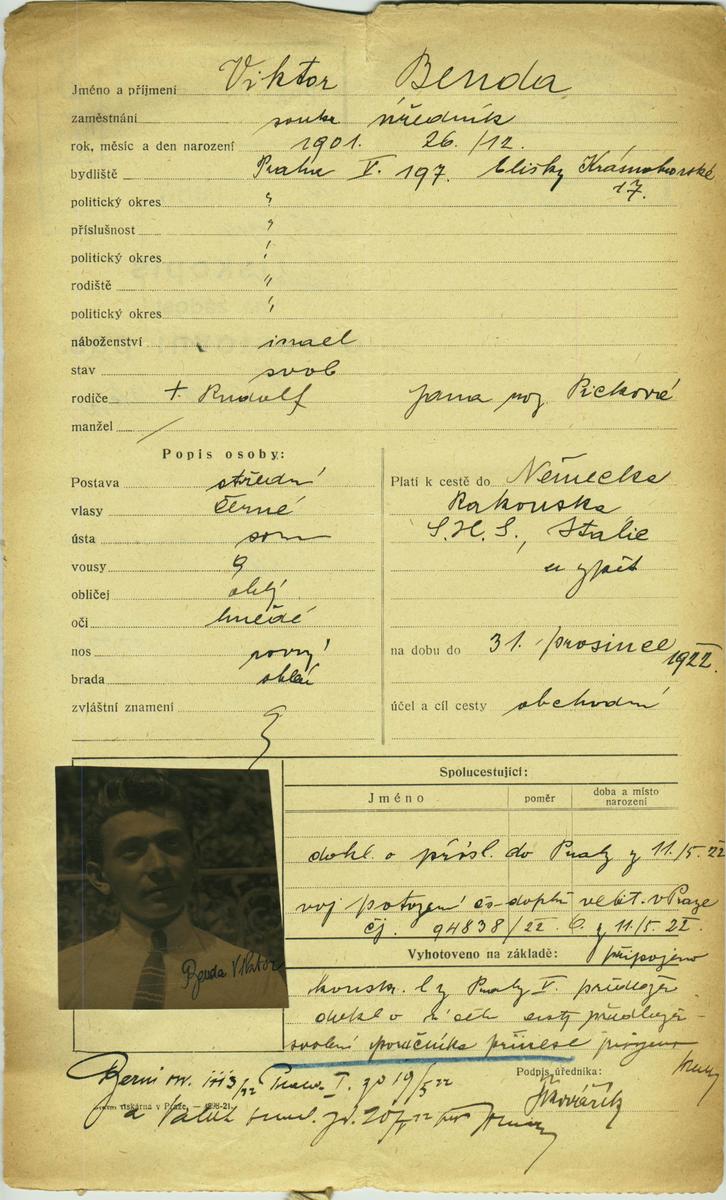 Jméno a příjmení Viktor Benda
zaměstnání soukr úředník
rok, měsíc a den narození 1901. 26./12.
bydliště Praha V. 197. Elišky Krásnohorské
17.
politický okres "
příslušnost "
politický okres "
rodiště "
politický okres "
náboženství israel
stav svob
rodiče + Rudolf Jana roz Picková
manžel /
Popis osoby:
Postava střední
vlasy černé
ústa
vousy
obličej oblý
oči hnědé
nos rovný
brada oblá
zvláštní znamení
Platí k cestě do Německa
Rakouska
S.H.S., Italie
a zpět
na dobu do 31. prosince
1922.
účel a cíl cesty obchodní
Spolucestující:
Jméno poměr doba a místo
narození
dokl. o přísl. do Prahy z 11./5. 22
voj potvrzení čs. doplň velit. v Praze
čj. 94838/22 z 11/5. 22.
Vyhotoveno na základě: připojeno
konskr. l z Prahy V. předložen
dokl o účelu cesty předložen
svolení poručníka přinese
Benda Viktor
Podpis úředníka:
Berní Praha I. 19/5 22
tiskárna v Praze.
a 20/5 22